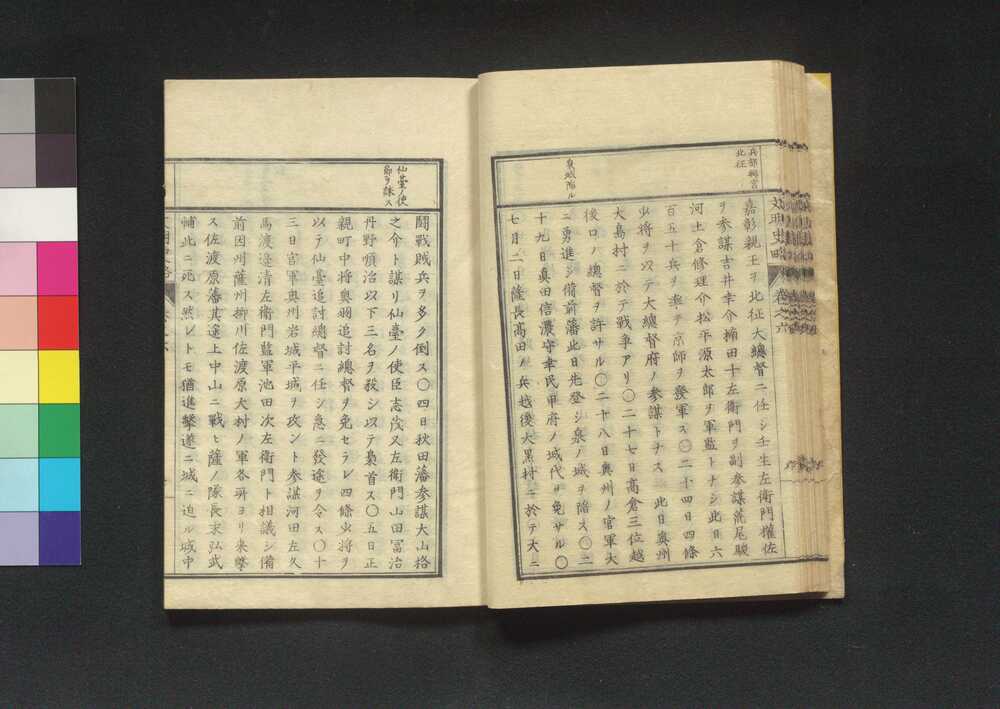 文明史略 卷之六
兵部卿宮
北征
嘉彰親王ヲ北征大總督ニ任シ壬生左衛門權佐
ヲ參謀吉井幸介楠田十左衛門ヲ副參謀荒尾駿
河土倉修理介松平源太郎ヲ軍監トナシ此日六
百五十兵ヲ率テ京師ヲ發軍ス〇二十四日四條
少將ヲ以テ大總督府ノ參謀トナス 此日奥州
大島村ニ於テ戰爭アリ〇二十七日高倉三位越
後口ノ總督ヲ許サル〇二十八日奥州ノ官軍大
泉城陷ル
ニ勇進シ備前藩此日先登シ泉ノ城ヲ陷ス〇二
十九日眞田信濃守幸民甲府ノ城代ヲ免サル〇
七月二日薩長高田ノ兵越後大黒村ニ於テ大ニ
鬪戰賊兵ヲ多ク倒ス〇四日秋田藩參謀大山格
仙臺ノ使
節ヲ誅ス
之介ト謀リ仙臺ノ使臣志茂又左衛門山田冨治
丹野愼治以下三名ヲ殺シ以テ梟首ス〇五日正
親町中將奥羽追討總督ヲ免セラレ四條少將ヲ
以テ仙臺追討總督ニ任シ急ニ發途ヲ令ス〇十
三日官軍奥州岩城平城ヲ攻ント參謀河田左久
馬渡邊清左衛門監軍池田次左衛門ト相議シ備
前因州薩州柳川佐渡原大村ノ軍各所ヨリ來撃
ス佐渡原藩其遂上中山ニ戰ヒ薩ノ隊長末弘武
輔此ニ死ス然レトモ猶進擊遂ニ城ニ迫ル城中